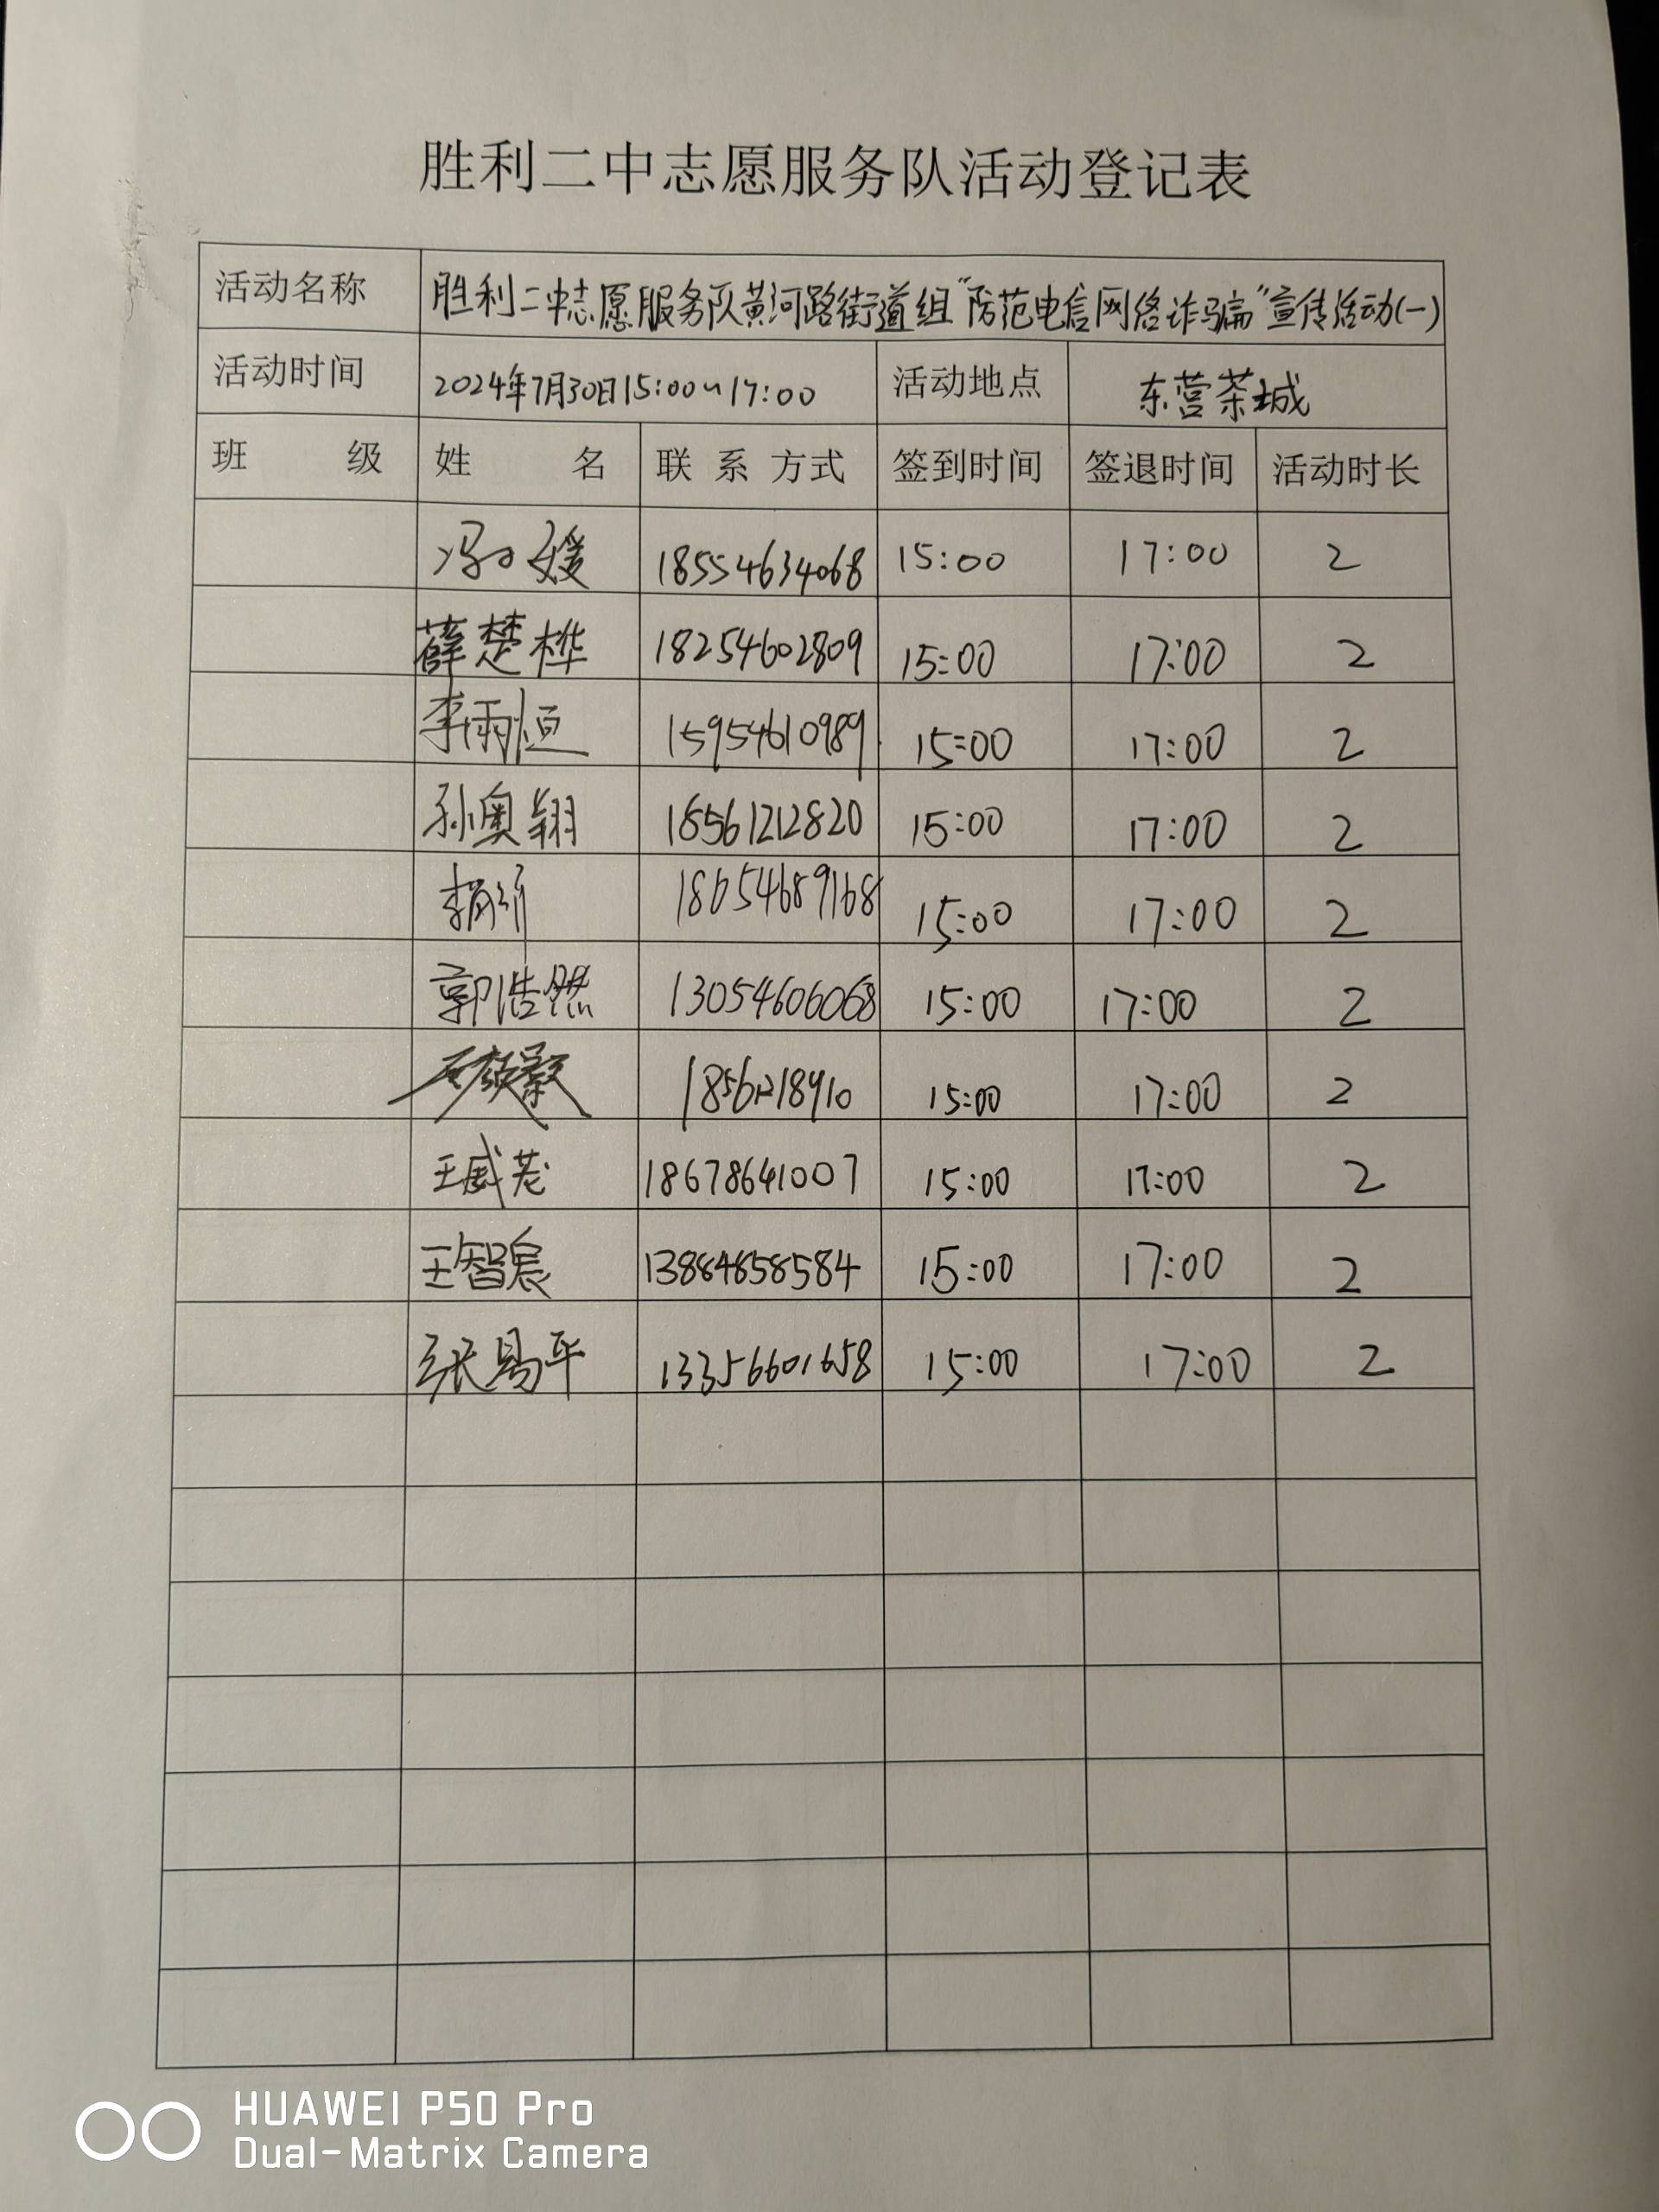 胜利二中志愿服务队活动登记表
活动名称 胜利二中志愿服务队黄河路街道组“防范电信网络诈骗”宣传活动(一)
活动时间 2024年7月30日15:00~17:00 活动地点 东营茶城
班 级 姓 名 联 系 方式 签到时间 签退时间 活动时长
冯 媛 18554634068 15:00 17:00 2
薛楚桦 18254602809 15:00 17:00 2
李雨恒 15954610989 15:00 17:00 2
孙奥翔 18561212820 15:00 17:00 2
李 18654689168 15:00 17:00 2
郭浩然 13054606068 15:00 17:00 2
15:00 17:00 2
王威 18678641007 15:00 17:00 2
王智宸 13884858584 15:00 17:00 2
张易平 13356601658 15:00 17:00 2
HUAWEI P50 Pro
Dual-Matrix Camera